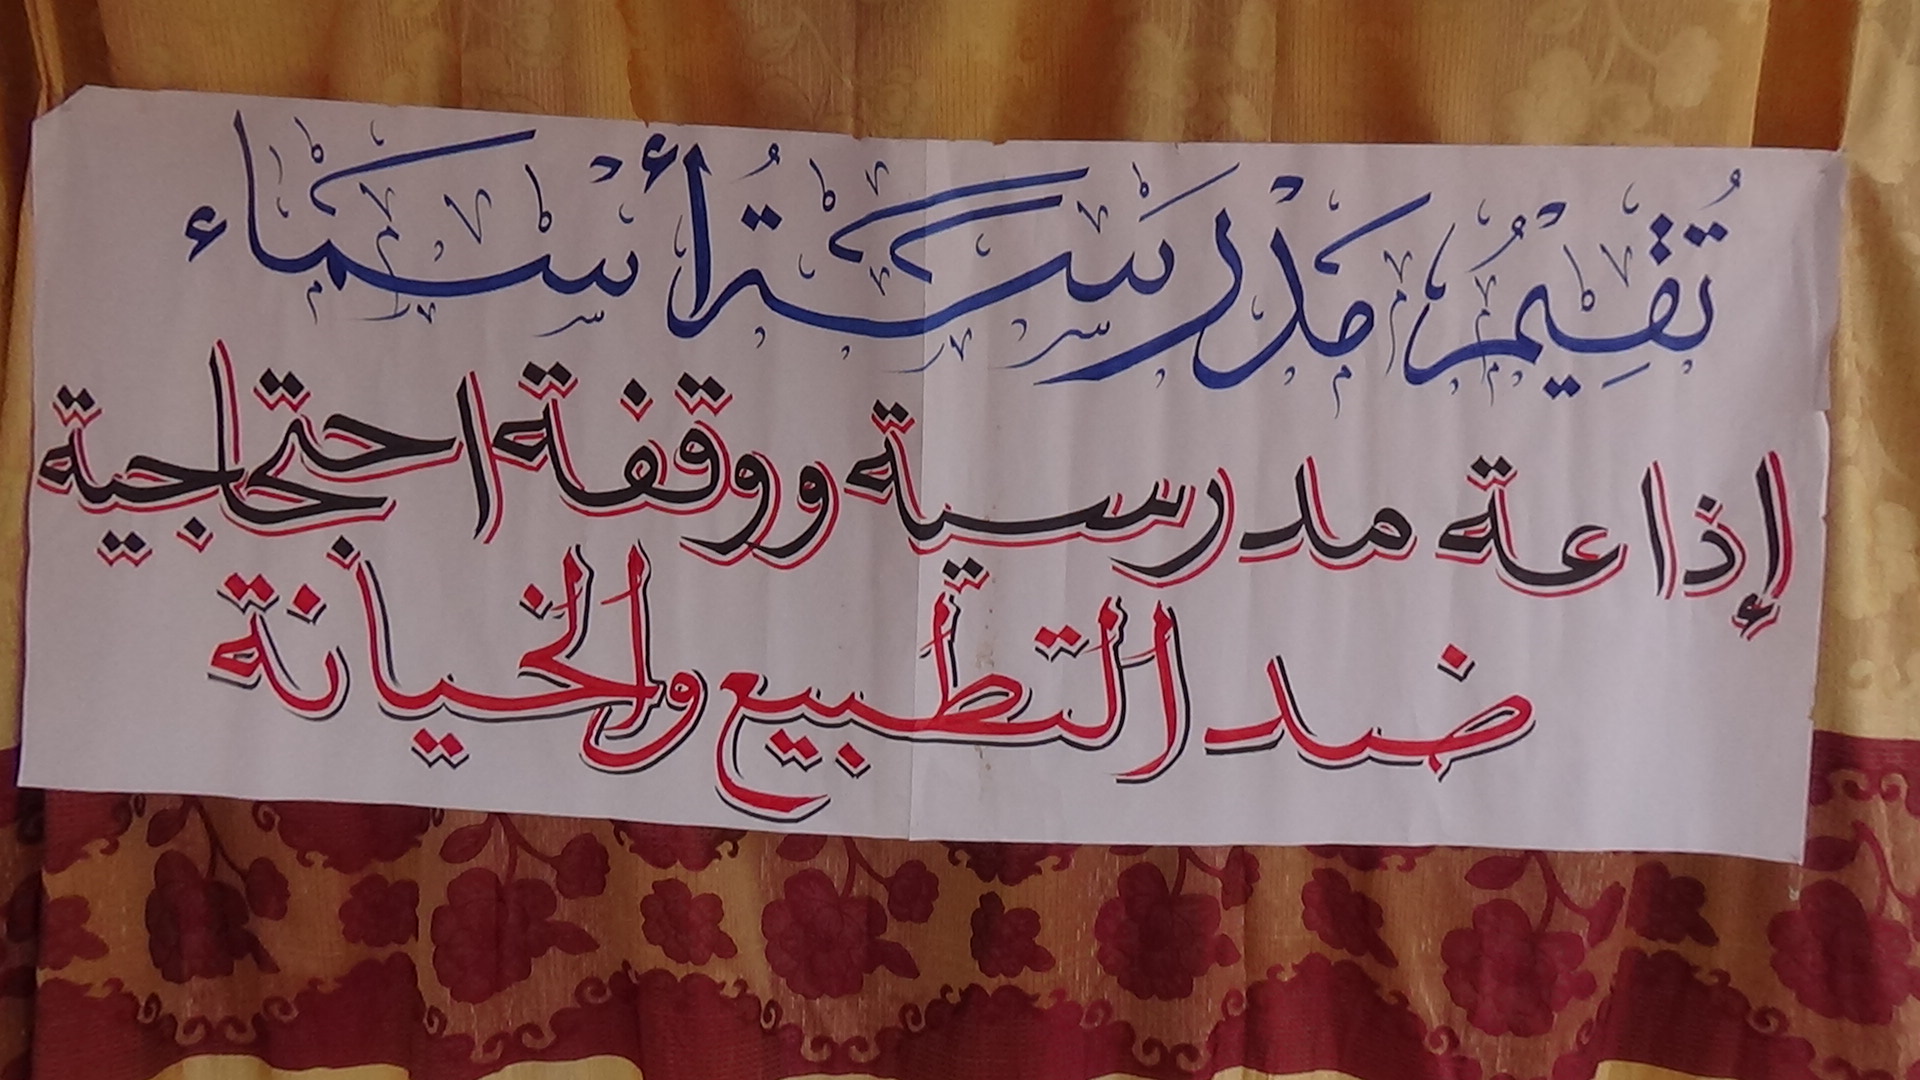 تُقِيْمُ مَدْرَسَةُ أَسْمَاء
إذاعة مدرسية ووقفة احتجاجية
ضد التطبيع والخيانة